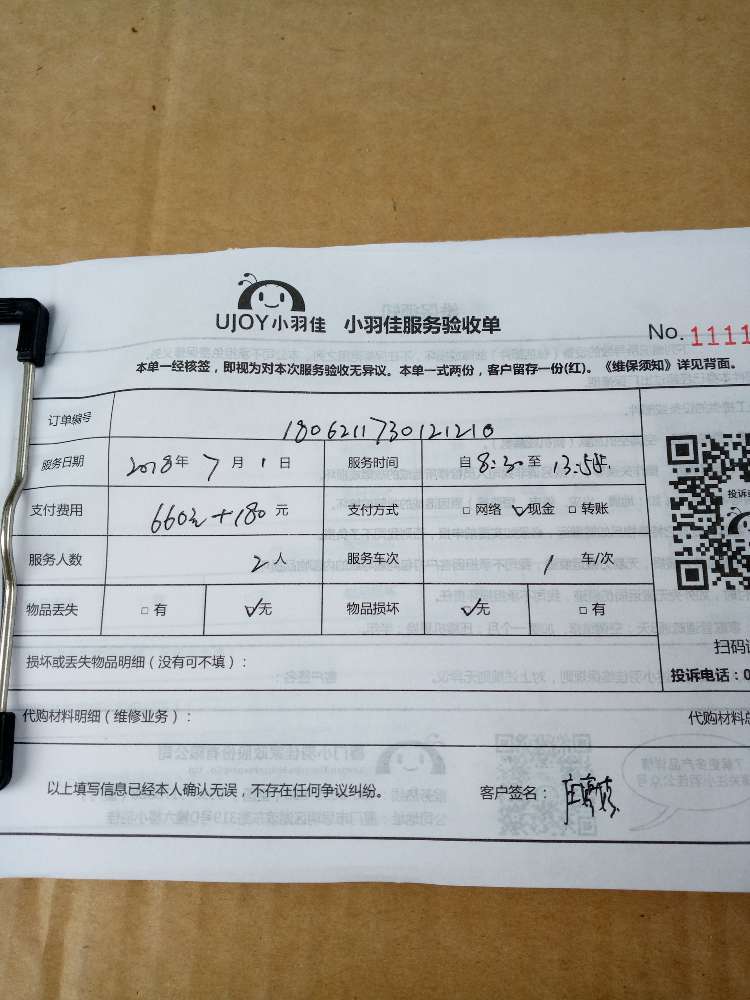 UJOY小羽佳 小羽佳服务验收单
No. 1111
本单一经核签，即视为对本次服务验收无异议。本单一式两份，客户留存一份(红)。《维保须知》详见背面。
订单编号 1806211730121210
服务日期 2018年 7月 1日 服务时间 自8:30至13:50
支付费用 660元+180元 支付方式 □网络 ☑现金 □转账
服务人数 2人 服务车次 1车/次
物品丢失 □有 ☑无 物品损坏 ☑无 □有
投诉
扫码
损坏或丢失物品明细（没有可不填）：
投诉电话：0
代购材料明细（维修业务）：
代购材料
以上填写信息已经本人确认无误，不存在任何争议纠纷。 客户签名：